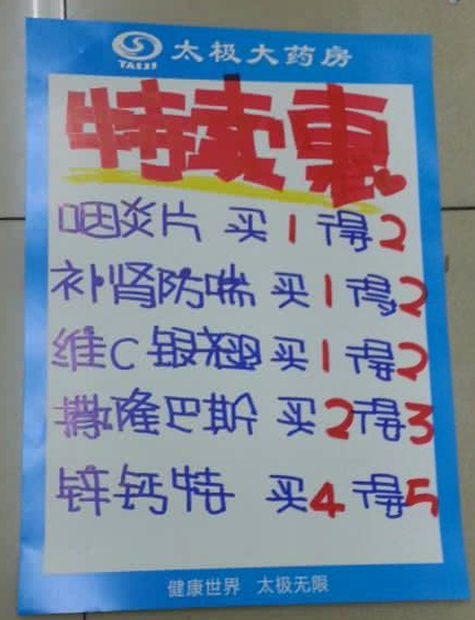 太极大药房
TAIJI
特卖惠
咽炎片 买1得2
补肾防喘 买1得2
维C银翘 买1得2
撒隆巴斯 买2得3
锌钙特 买4得5
健康世界 太极无限